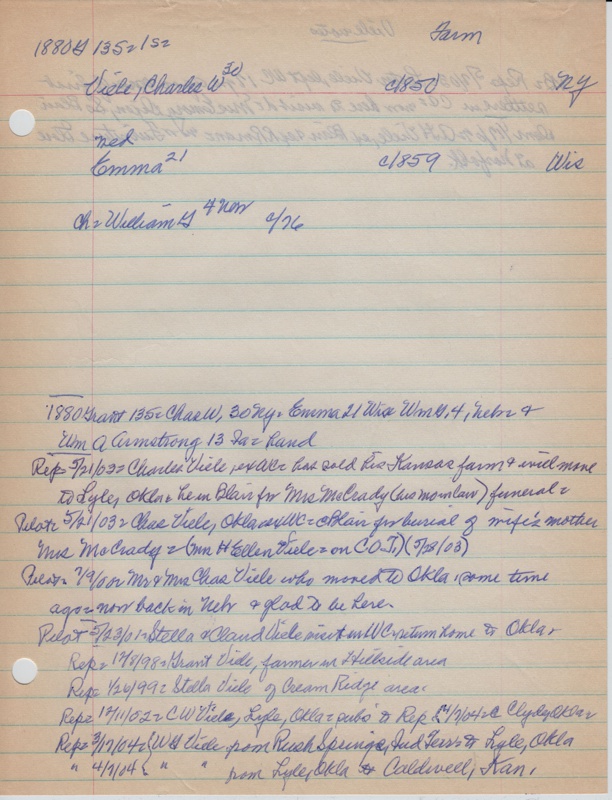 1880 G 135= 1s=
Farm
Viele, Charles W 30 c/1850 NY
med
Emma 21 c/1859 Wis
Ch= William G 4 Nebr c/76
1880 Grant 135= Chas W, 30 NY= Emma 21 Wis= Wm G, 4, Nebr &
Wm A Armstrong 13 Ia= hand
Rep= 5/21/03= Charles Viele, = has sold his Kansas farm & will move
to Lyle, Okla= here Blair for Mrs McCrady (his mominlaw) funeral=
Pilot= 5/21/03= Chas Viele, Okla= exWC= Blair for burial of wife's mother
Mrs McCrady= (Mrs H Ellen Viele= on C.O.T.) (5/28/03)
Pilot= 7/9/00= Mr & Mrs Chas Viele who moved to Okla, some time
ago= now back in Nebr & glad to be here.
Pilot= 5/23/01= Stella & Claud Viele visit in WC= return home to Okla=
Rep= 12/8/98= Grant Viele, farmer in Hillside area
Rep= 1/26/99= Stella Viele of Cream Ridge area.
Rep= 12/11/02= C W Viele, Lyle, Okla= subs to Rep & 4/7/04= C Clyde, Okla=
Rep= 3/17/04= { W G Viele, from Rush Springs, Ind Terr= to Lyle, Okla
" 4/7/04 { " " from Lyle, Okla to Caldwell, Kan.